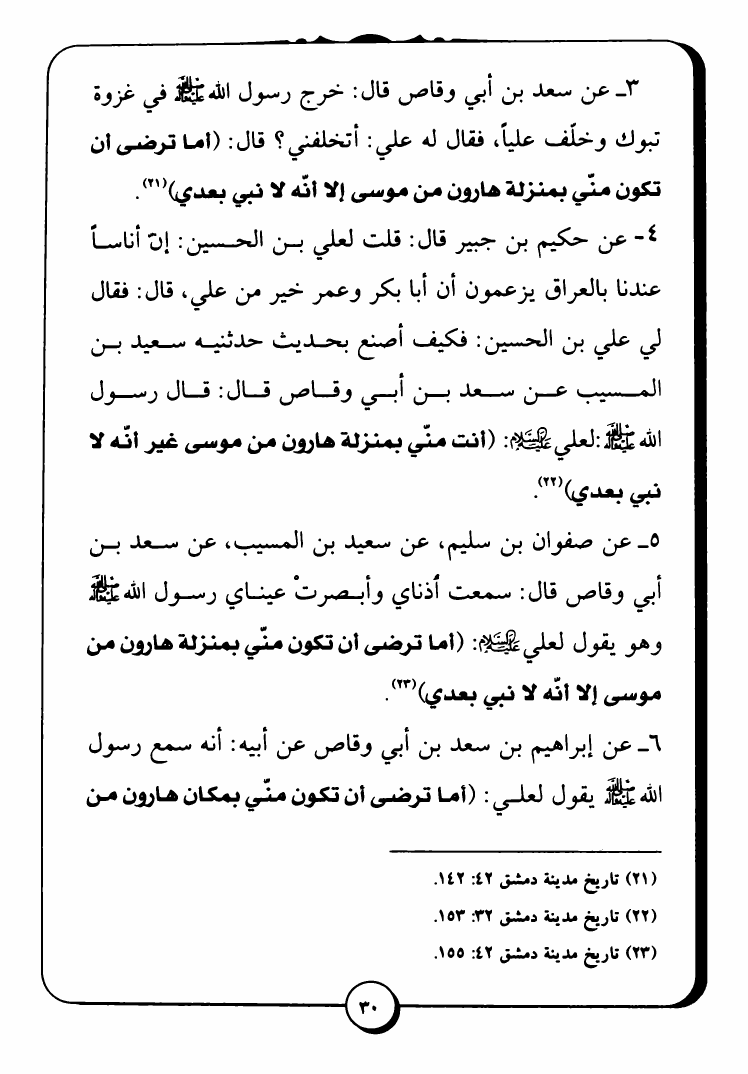 ٣ـ عن سعد بن أبي وقاص قال: خرج رسول الله ﷺ في غزوة
تبوك وخلّف علياً، فقال له علي: أتخلفني؟ قال: (أما ترضى أن
تكون منّي بمنزلة هارون من موسى إلا أنّه لا نبي بعدي)(٢١).
٤- عن حكيم بن جبير قال: قلت لعلي بـن الحـسين: إنّ أناسـاً
عندنا بالعراق يزعمون أن أبا بكر وعمر خير من علي، قال: فقال
لي علي بن الحسين: فكيف أصنع بحـديث حدثنيـه سـعيد بـن
المـسيب عـن سـعد بـن أبـي وقـاص قـال: قـال رسـول
الله ﷺ:لعلي عليه السلام: (أنت منّي بمنزلة هارون من موسى غير أنّه لا
نبي بعدي)(٢٢).
٥ـ عن صفوان بن سليم، عن سعيد بن المسيب، عن سـعد بـن
أبي وقاص قال: سمعت أذناي وأبـصرتْ عينـاي رسـول الله ﷺ
وهو يقول لعلي عليه السلام: (أما ترضى أن تكون منّي بمنزلة هارون من
موسى إلا أنّه لا نبي بعدي)(٢٣).
٦ـ عن إبراهيم بن سعد بن أبي وقاص عن أبيه: أنه سمع رسول
الله ﷺ يقول لعلـي: (أمـا ترضـى أن تكون منّـي بمكان هـارون مـن
(٢١) تاريخ مدينة دمشق ٤٢: ١٤٢.
(٢٢) تاريخ مدينة دمشق ٣٢: ١٥٣.
(٢٣) تاريخ مدينة دمشق ٤٢: ١٥٥.
٣٠